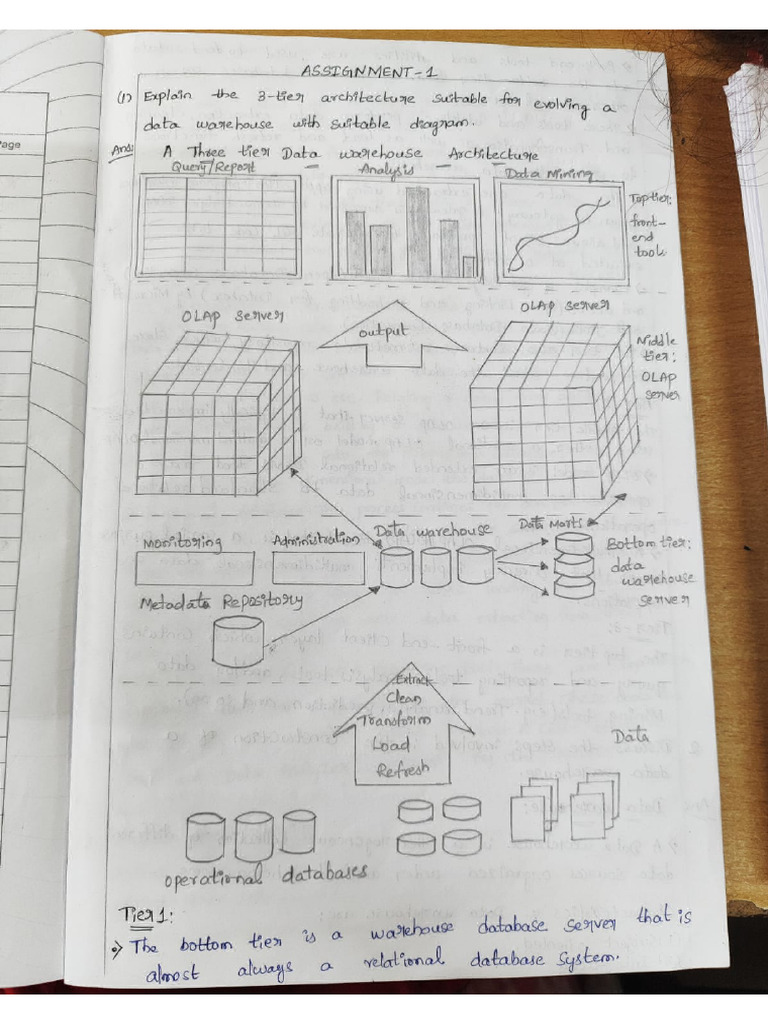 age
ASSIGNMENT-1
(1) Explain the 3-tier architecture suitable for evolving a
data warehouse with suitable diagram.
Ans: A Three tier Data warehouse Architecture
Query/Report Analysis Data Mining
Top tier:
front-
end
tools
OLAP server
output
OLAP server
Middle
tier:
OLAP
server
Monitoring Administration Data warehouse Data Marts
Bottom tier:
data
warehouse
server
Metadata Repository
Extract
Clean
Transform
Load
Refresh
Data
operational databases
Tier 1:
The bottom tier is a warehouse database server that is
almost always a relational database system.